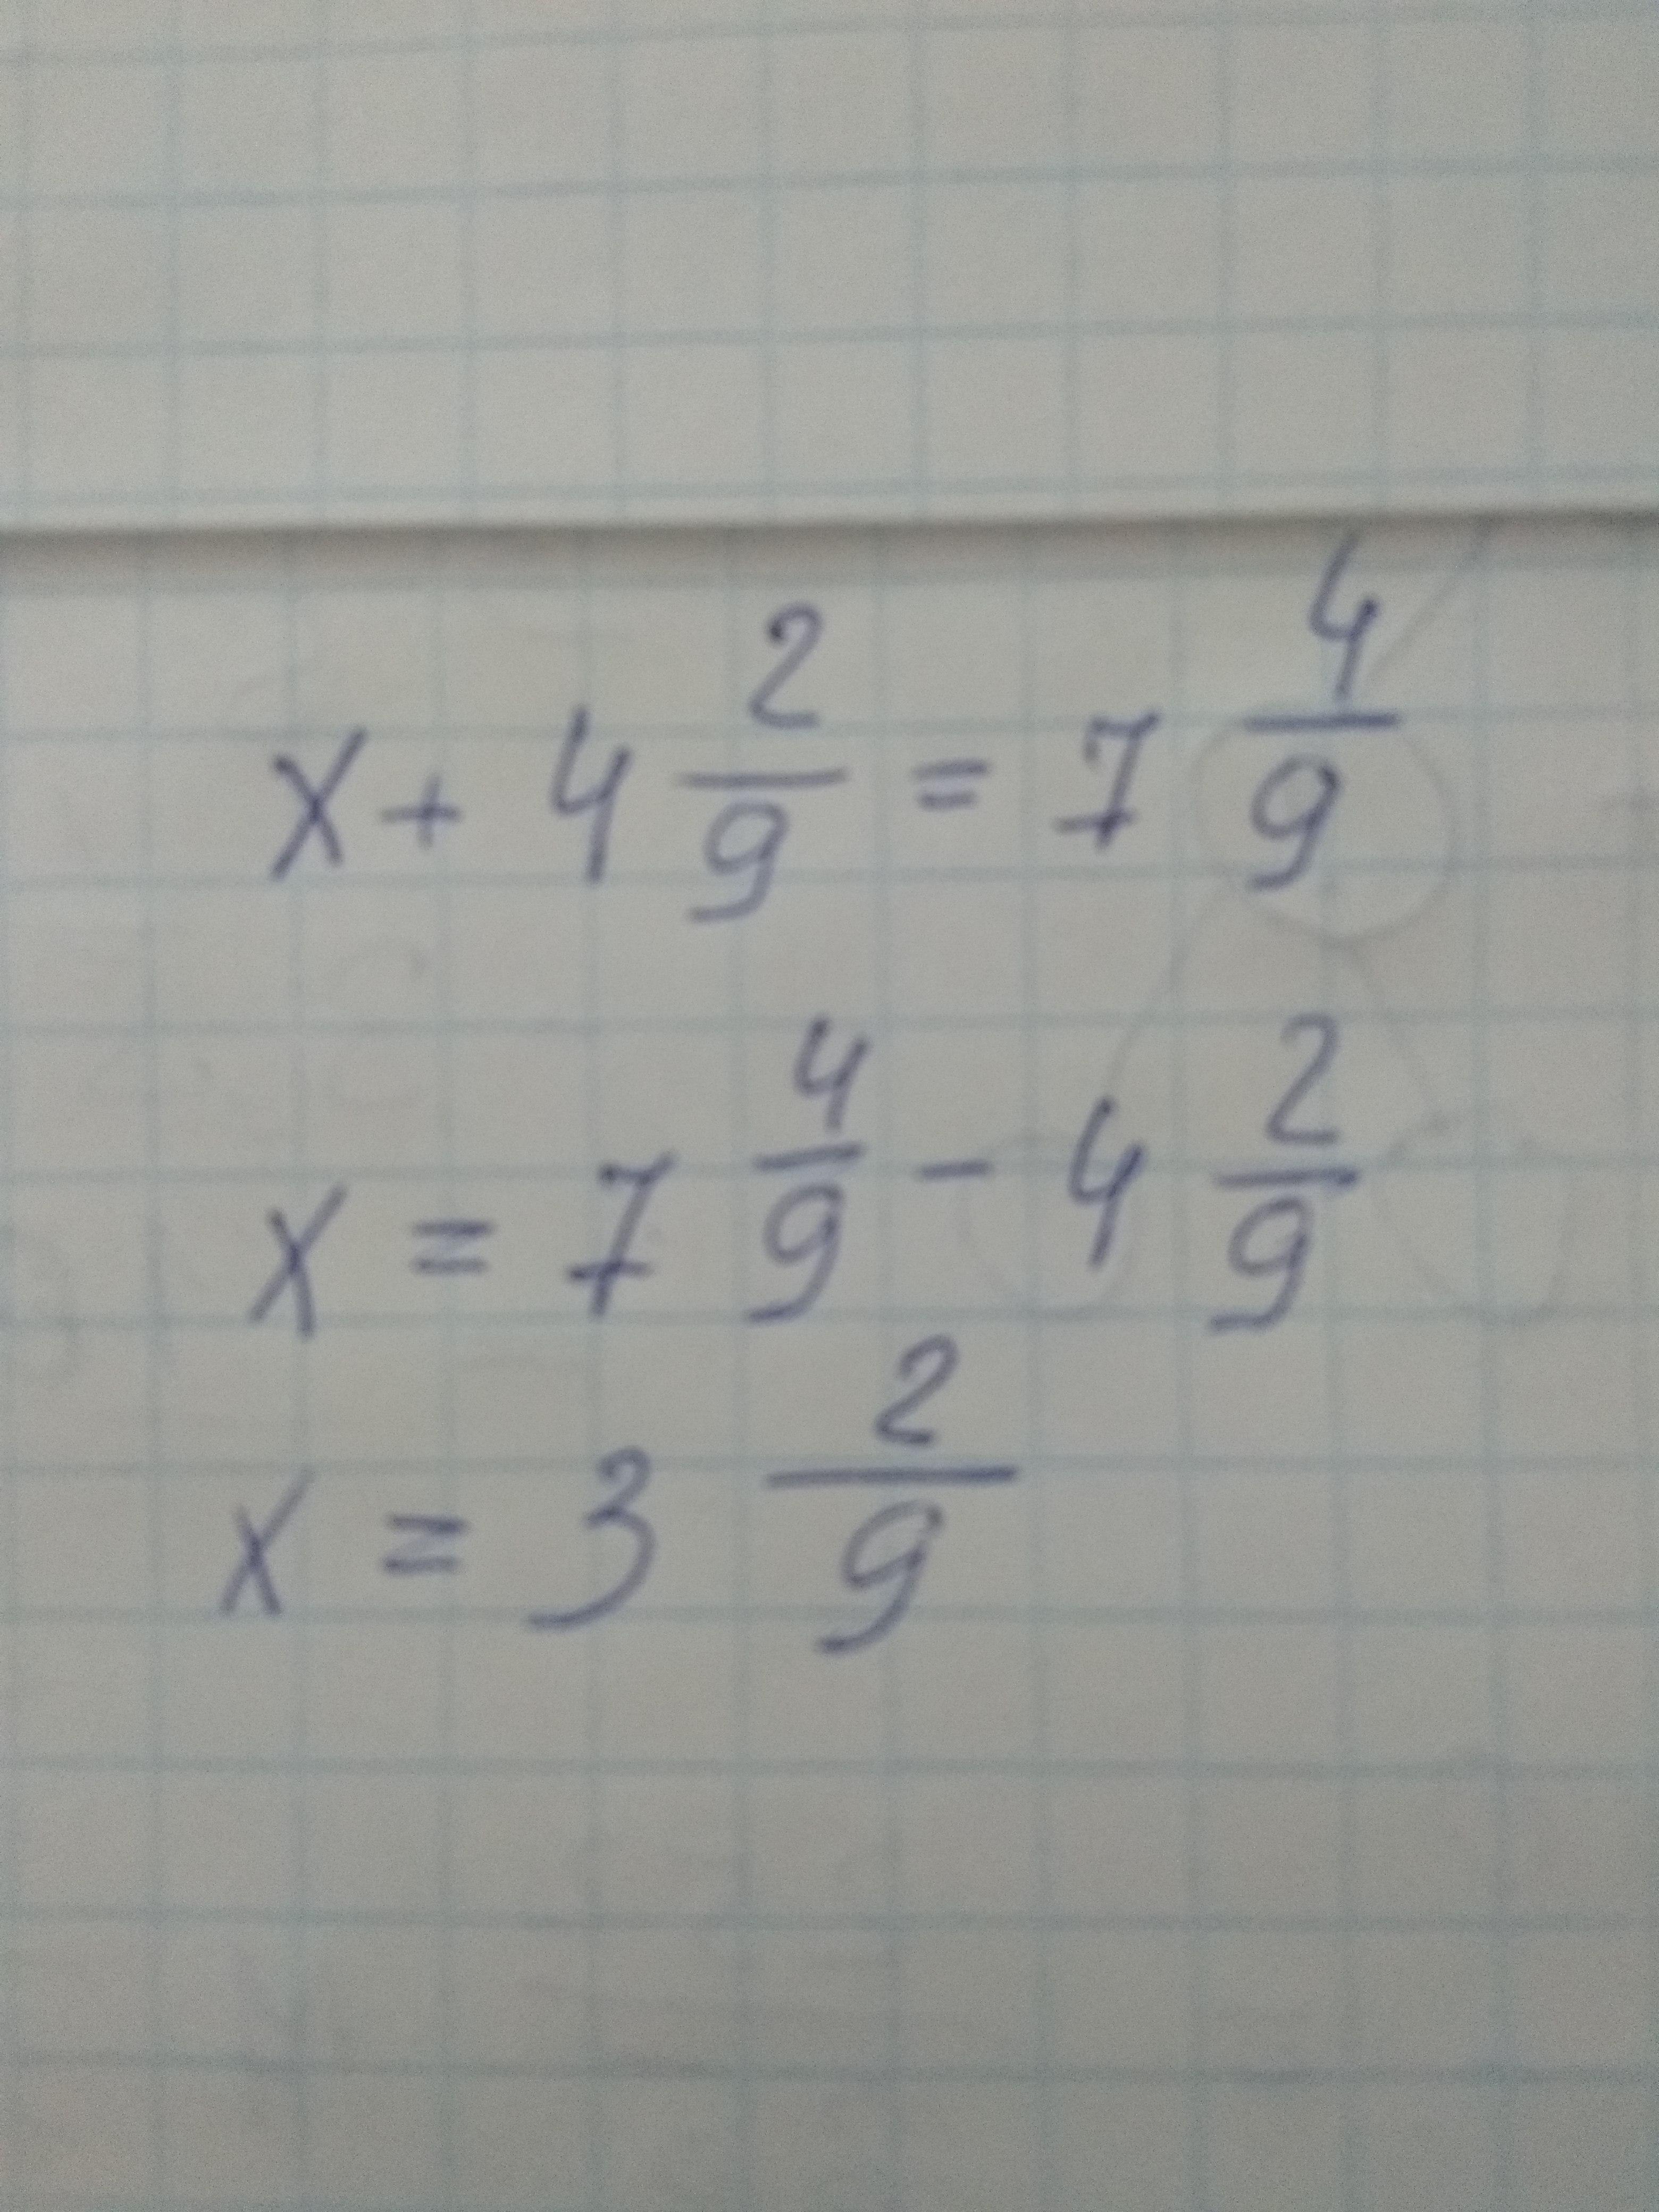 x + 4 2/9 = 7 4/9
x = 7 4/9 - 4 2/9
x = 3 2/9